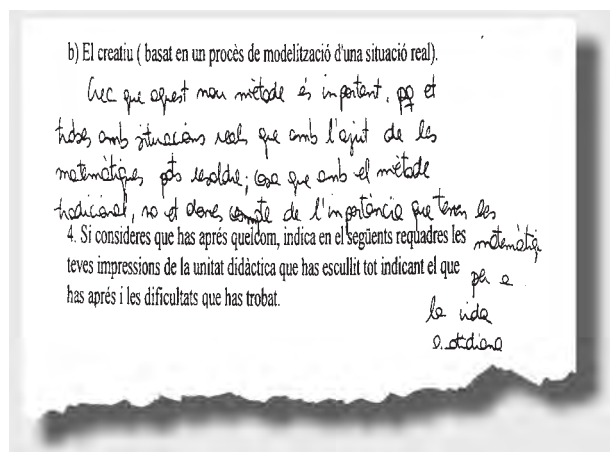 b) El creatiu ( basat en un procès de modelització d'una situació real).
Crec que aquest nou mètode és important, pq et
trobes amb situacions reals que amb l'ajut de les
matemàtiques pots resoldre; cosa que amb el mètode
tradicional, no et dones compte de l'importància que tenen les
4. Si consideres que has aprés quelcom, indica en el següents requadres les
matemàtiq
teves impressions de la unitat didàctica que has escullit tot indicant el que
per a
has aprés i les dificultats que has trobat.
la vida